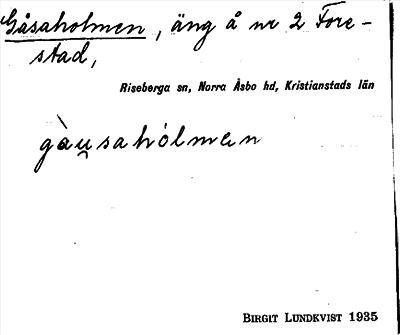 Gåsaholmen, äng å nr 2 Fore-
stad,
Riseberga sn, Norra Åsbo hd, Kristianstads län
gàu̯sahòlmen
BIRGIT LUNDKVIST 1935